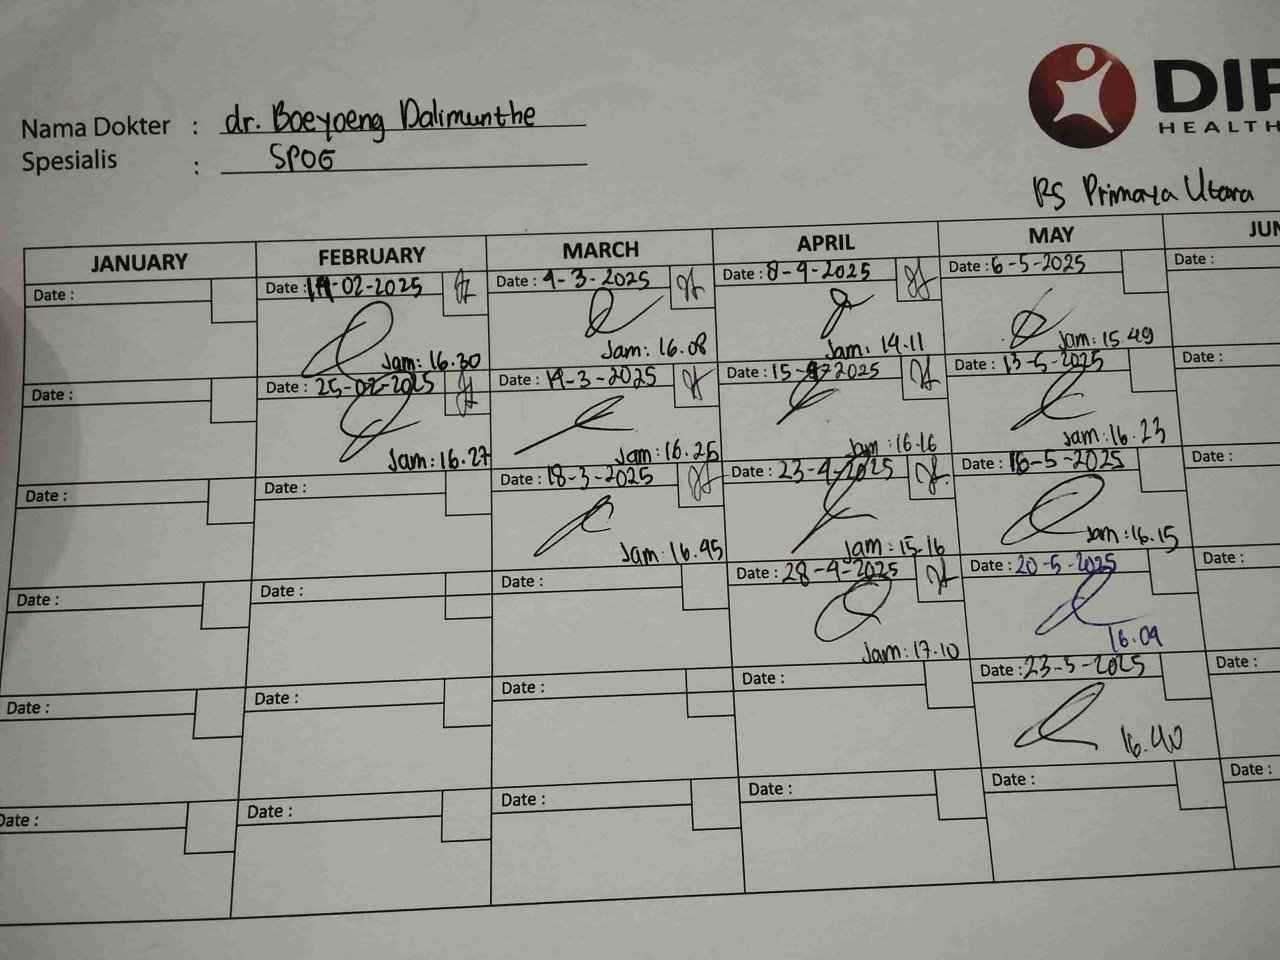 DIP
HEALTH
Nama Dokter : dr. Boeyoeng Dalimunthe
Spesialis : SPOG
RS Primaya Utara
JANUARY FEBRUARY MARCH APRIL MAY JUN
Date : Date : 14-02-2025 Date : 4-3-2025 Date : 8-4-2025 Date : 6-5-2025 Date :
Jam: 16.30 Jam: 16.08 Jam: 14.11 Jam: 15.49
Date : Date : 25-02-2025 Date : 14-3-2025 Date : 15-4-2025 Date : 13-5-2025 Date :
Jam: 16.27 Jam: 16.25 Jam: 16.16 Jam: 16.23
Date : Date : Date : 18-3-2025 Date : 23-4-2025 Date : 16-5-2025 Date :
Jam: 16.45 Jam: 15.16 Jam: 16.15
Date : Date : Date : Date : 28-4-2025 Date : 20-5-2025 Date :
Jam: 17.10 16.09
Date : Date : Date : Date : Date : 23-5-2025 Date :
16.40
Date : Date : Date : Date : Date : Date :